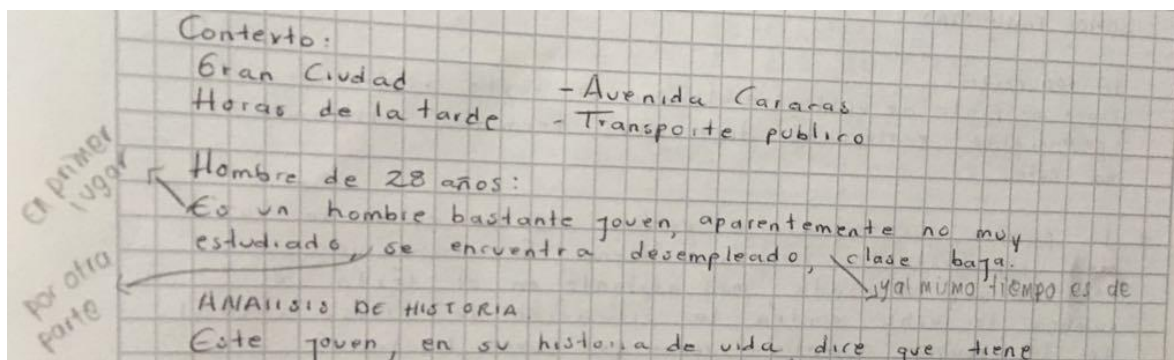 Contexto:
Gran Ciudad - Avenida Caracas
Horas de la tarde - Transporte publico
En primer lugar
Hombre de 28 años:
Es un hombre bastante joven, aparentemente no muy
estudiado, se encuentra desempleado, clase baja.
y al mismo tiempo es de
por otra parte
ANALISIS DE HISTORIA
Este joven, en su historia de vida dice que tiene